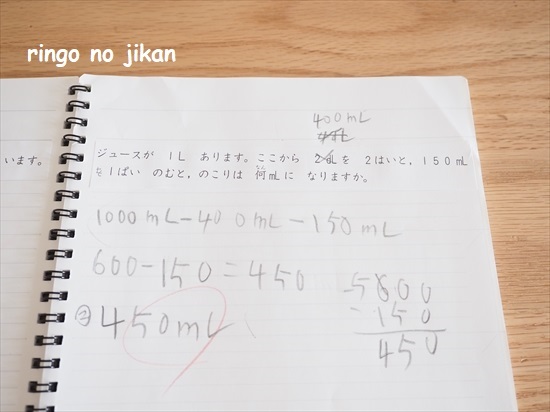 ringo no jikan
います。
400mL
ジュースが 1L あります。ここから 2dLを 2はいと,150mL
を1ぱい のむと,のこりは 何mLに なりますか。
なん
1000mL-400mL-150mL
600-150=450
答450mL
5600
-150
450